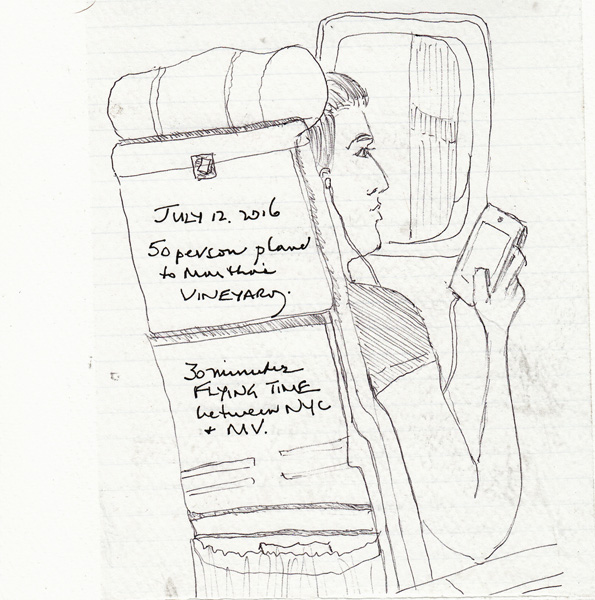 JULY 12. 2016
50 person plane
to Martha's
VINEYARD.
30 minutes
FLYING TIME
between NYC
+ MV.